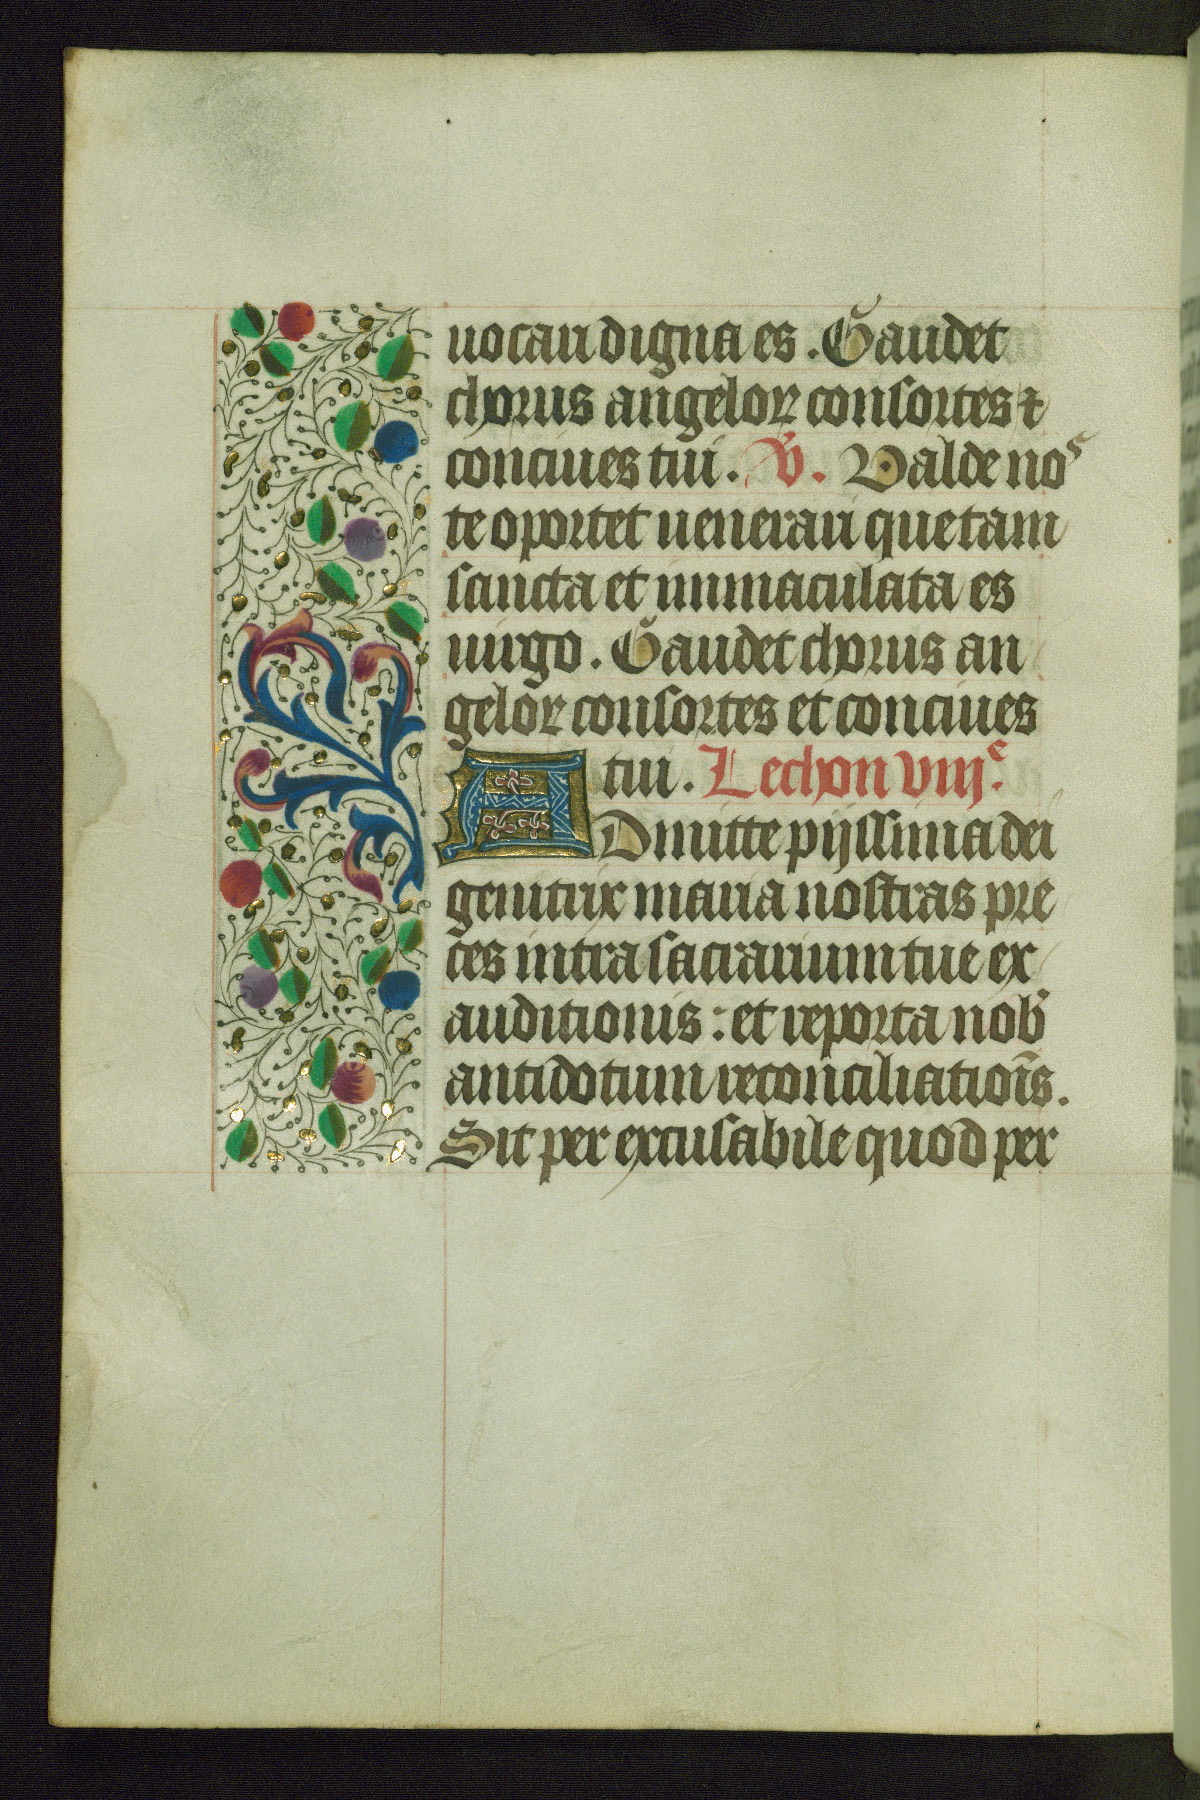 uocari digna es . Gaudet
chorus angeloꝝ consortes ⁊
conciues tui . V̓. Valde noˢ
te oportet uenerari que tam
sancta et immaculata es
uirgo . Gaudet chorus an
geloꝝ consortes et conciues
tui . Lechon viijᵉ.
ADmitte pijssima dei
genitrix maria nostras pre
ces intra sacrarium tue ex
auditionis : et reporta nob̓
antidotum reconciliatioīs .
Sit per excusabile quod per